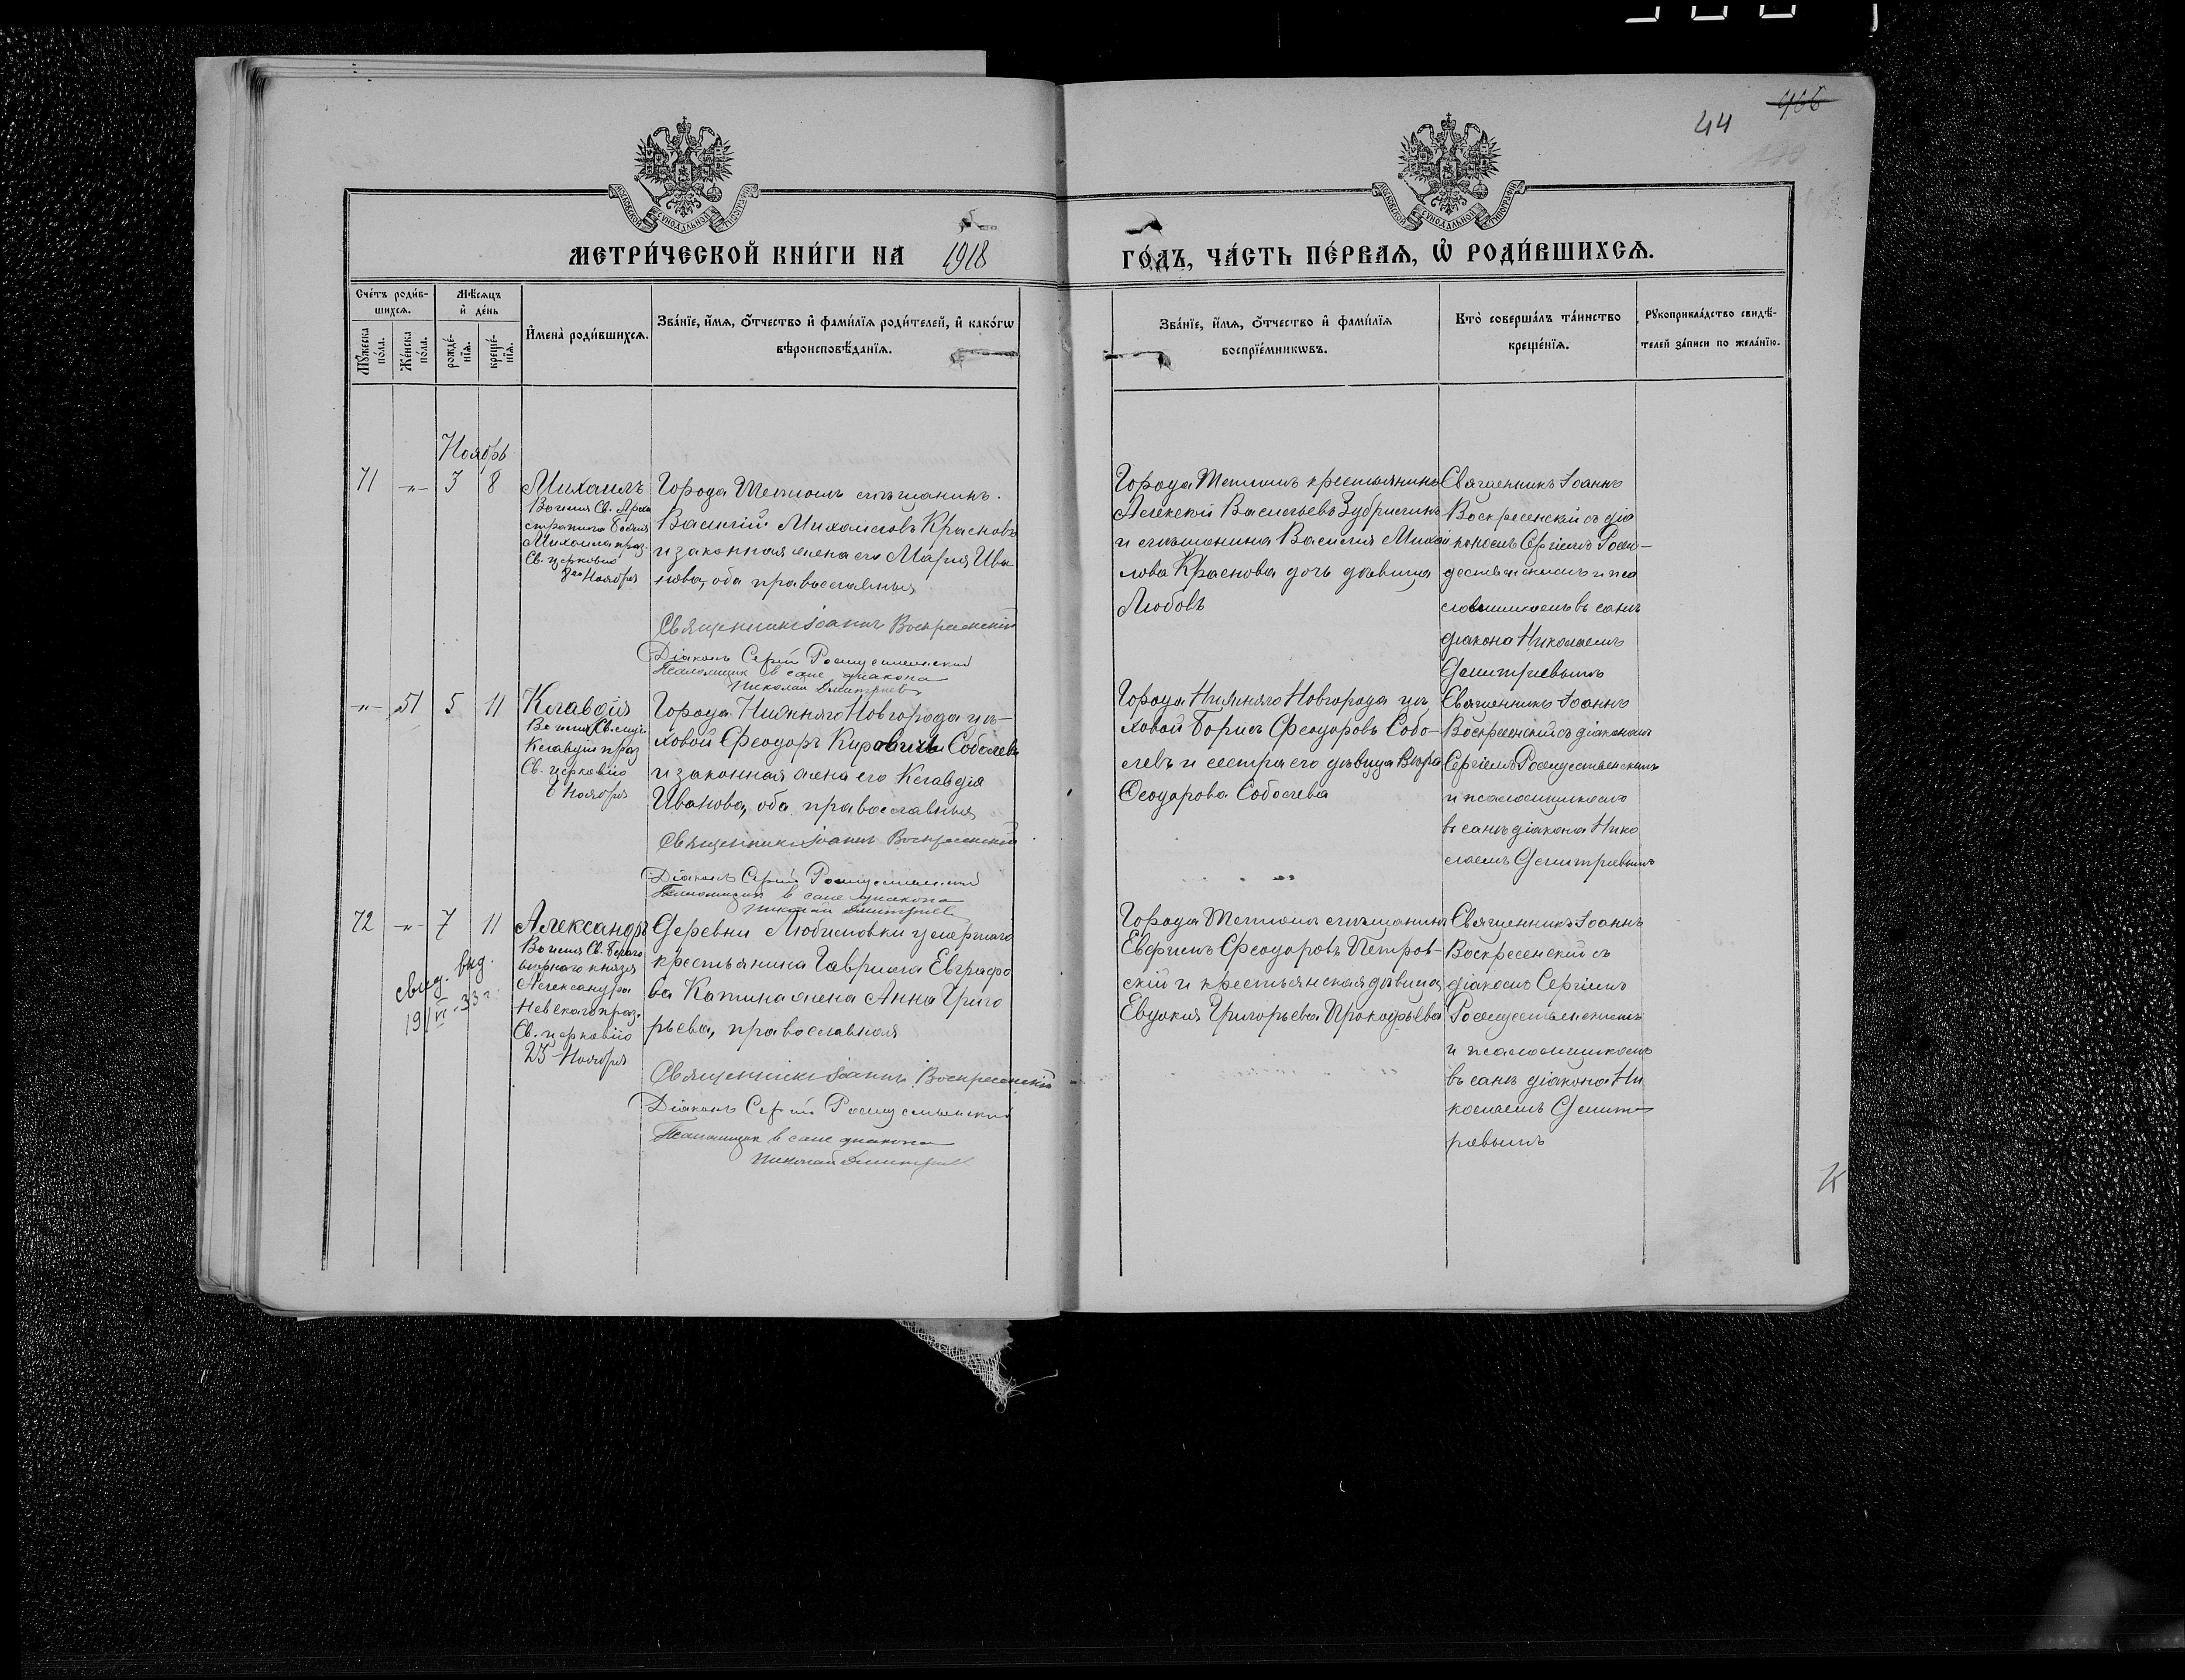 44
466
МЕТРИ́ЧЕСКОЙ КНИ́ГИ НА 1918
ГО́ДЪ, ЧА́СТЬ ПЕ́РВАѦ, Ѡ҆ РОДИ́ВШИХСѦ.
Сче́тъ роди́в-
шихсѧ.
Мѣ́сѧцъ
и҆ де́нь
И҆мена̀ роди́вшихсѧ.
Зва́нїе, и҆́мѧ, ѻ҆́тчество и҆ фами́лїѧ роди́телей, и҆ како́гѡ
вѣроисповѣ́данїѧ.
Мꙋ́жеска
пола.
Же́нска
пола.
рожде́-
нїѧ.
креще́-
нїѧ.
Зва́нїе, и҆́мѧ, ѻ҆́тчество и҆ фами́лїѧ
воспрїе́мникѡвъ.
Кто̀ соверша́лъ та́инство
креще́нїѧ.
Рꙋкоприкла́дство свидѣ́-
телей за́писи по жела́нїю.
Ноябрь
71 -„- 3 8
Михаилъ
Во имя Св. Архи
стратига Божія
Михаила праз.
Св. церковію
8го Ноября
Города Тетюшъ мѣщанинъ
Василій Михаиловъ Красновъ
и законная жена его Марія Ива
нова, оба православныя
Священникъ Іоаннъ Воскресенскій
Діаконъ Сергій Рождественскій
Псаломщик в сане диакона
Николай Дмитриев
Города Тетюшъ крестьянинъ
Алексѣй Васильевъ Зубрилинъ
и мѣщанина Василія Михаи
лова Краснова дочь дѣвица
Любовь
Священникъ Іоаннъ
Воскресенскій съ діа
кономъ Сергіемъ Рож-
дественскимъ и пса
ломщикомъ въ санѣ
діакона Николаемъ
Димитріевымъ
-„- 51 5 11
Клавдія
Во имя Св. муч.
Клавдіи праз
Св. церковію
6 Ноября
Города Нижняго Новгорода це-
ховой Ѳеодоръ Кировичъ Соболевъ
и законная жена его Клавдія
Иванова, оба православныя
Священникъ Іоаннъ Воскресенскій
Діаконъ Сергій Рождественский
Псаломщик в сане диакона
Николай Дмитриев
Города Нижняго Новгорода це
ховой Борисъ Ѳеодоровъ Собо-
левъ и сестра его дѣвица Вѣра
Ѳеодорова Соболева
Священникъ Іоаннъ
Воскресенскій съ діакономъ
Сергіемъ Рождественскимъ
и псаломщикомъ
въ санѣ діакона Нико
лаемъ Димитріевымъ
72 -„- 7 11
свид. выд.
19/VI-33 г.
Александръ
Во имя Св. благо
вѣрнаго князя
Александра
Невскаго праз.
Св. церковію
23 Ноября
Деревни Любимовки умершаго
крестьянина Гавриила Евграфо
ва Катина жена Анна Григо
рьева, православная
Священникъ Іоаннъ Воскресенскій
Діаконъ Сергій Рождественский
Псаломщик в сане диакона
Николай Дмитриев
Города Тетюшъ мѣщанинъ
Евфимъ Ѳеодоровъ Петров-
скій и крестьянская дѣвица
Евдокія Григорьева Прокофьева
Священникъ Іоаннъ
Воскресенскій съ
діакомъ Сергіемъ
Рождественскимъ
и псаломщикомъ
въ санѣ діакона Ни
колаемъ Димит-
ріевымъ